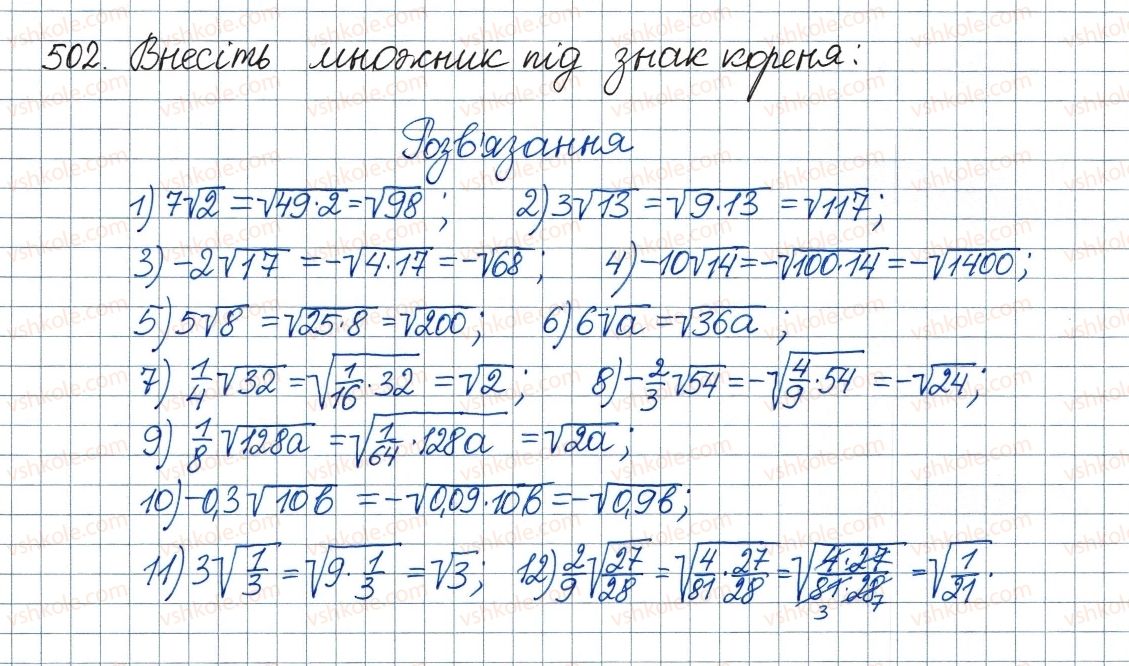 502. Внесіть множник під знак кореня:
Розв'язання
1) 7√2 = √49·2 = √98 ; 2) 3√13 = √9·13 = √117;
3) -2√17 = -√4·17 = -√68 ; 4) -10√14 = -√100·14 = -√1400 ;
5) 5√8 = √25·8 = √200 ; 6) 6√a = √36a ;
7) 1/4 √32 = √1/16 · 32 = √2 ; 8) -2/3 √54 = -√4/9 · 54 = -√24 ;
9) 1/8 √128a = √1/64 · 128a = √2a ;
10) -0,3√10в = -√0,09·10в = -√0,9в ;
11) 3√1/3 = √9 · 1/3 = √3 ; 12) 2/9 √27/28 = √4/81 · 27/28 = √4·27/81·28 3 7 = √1/21 .